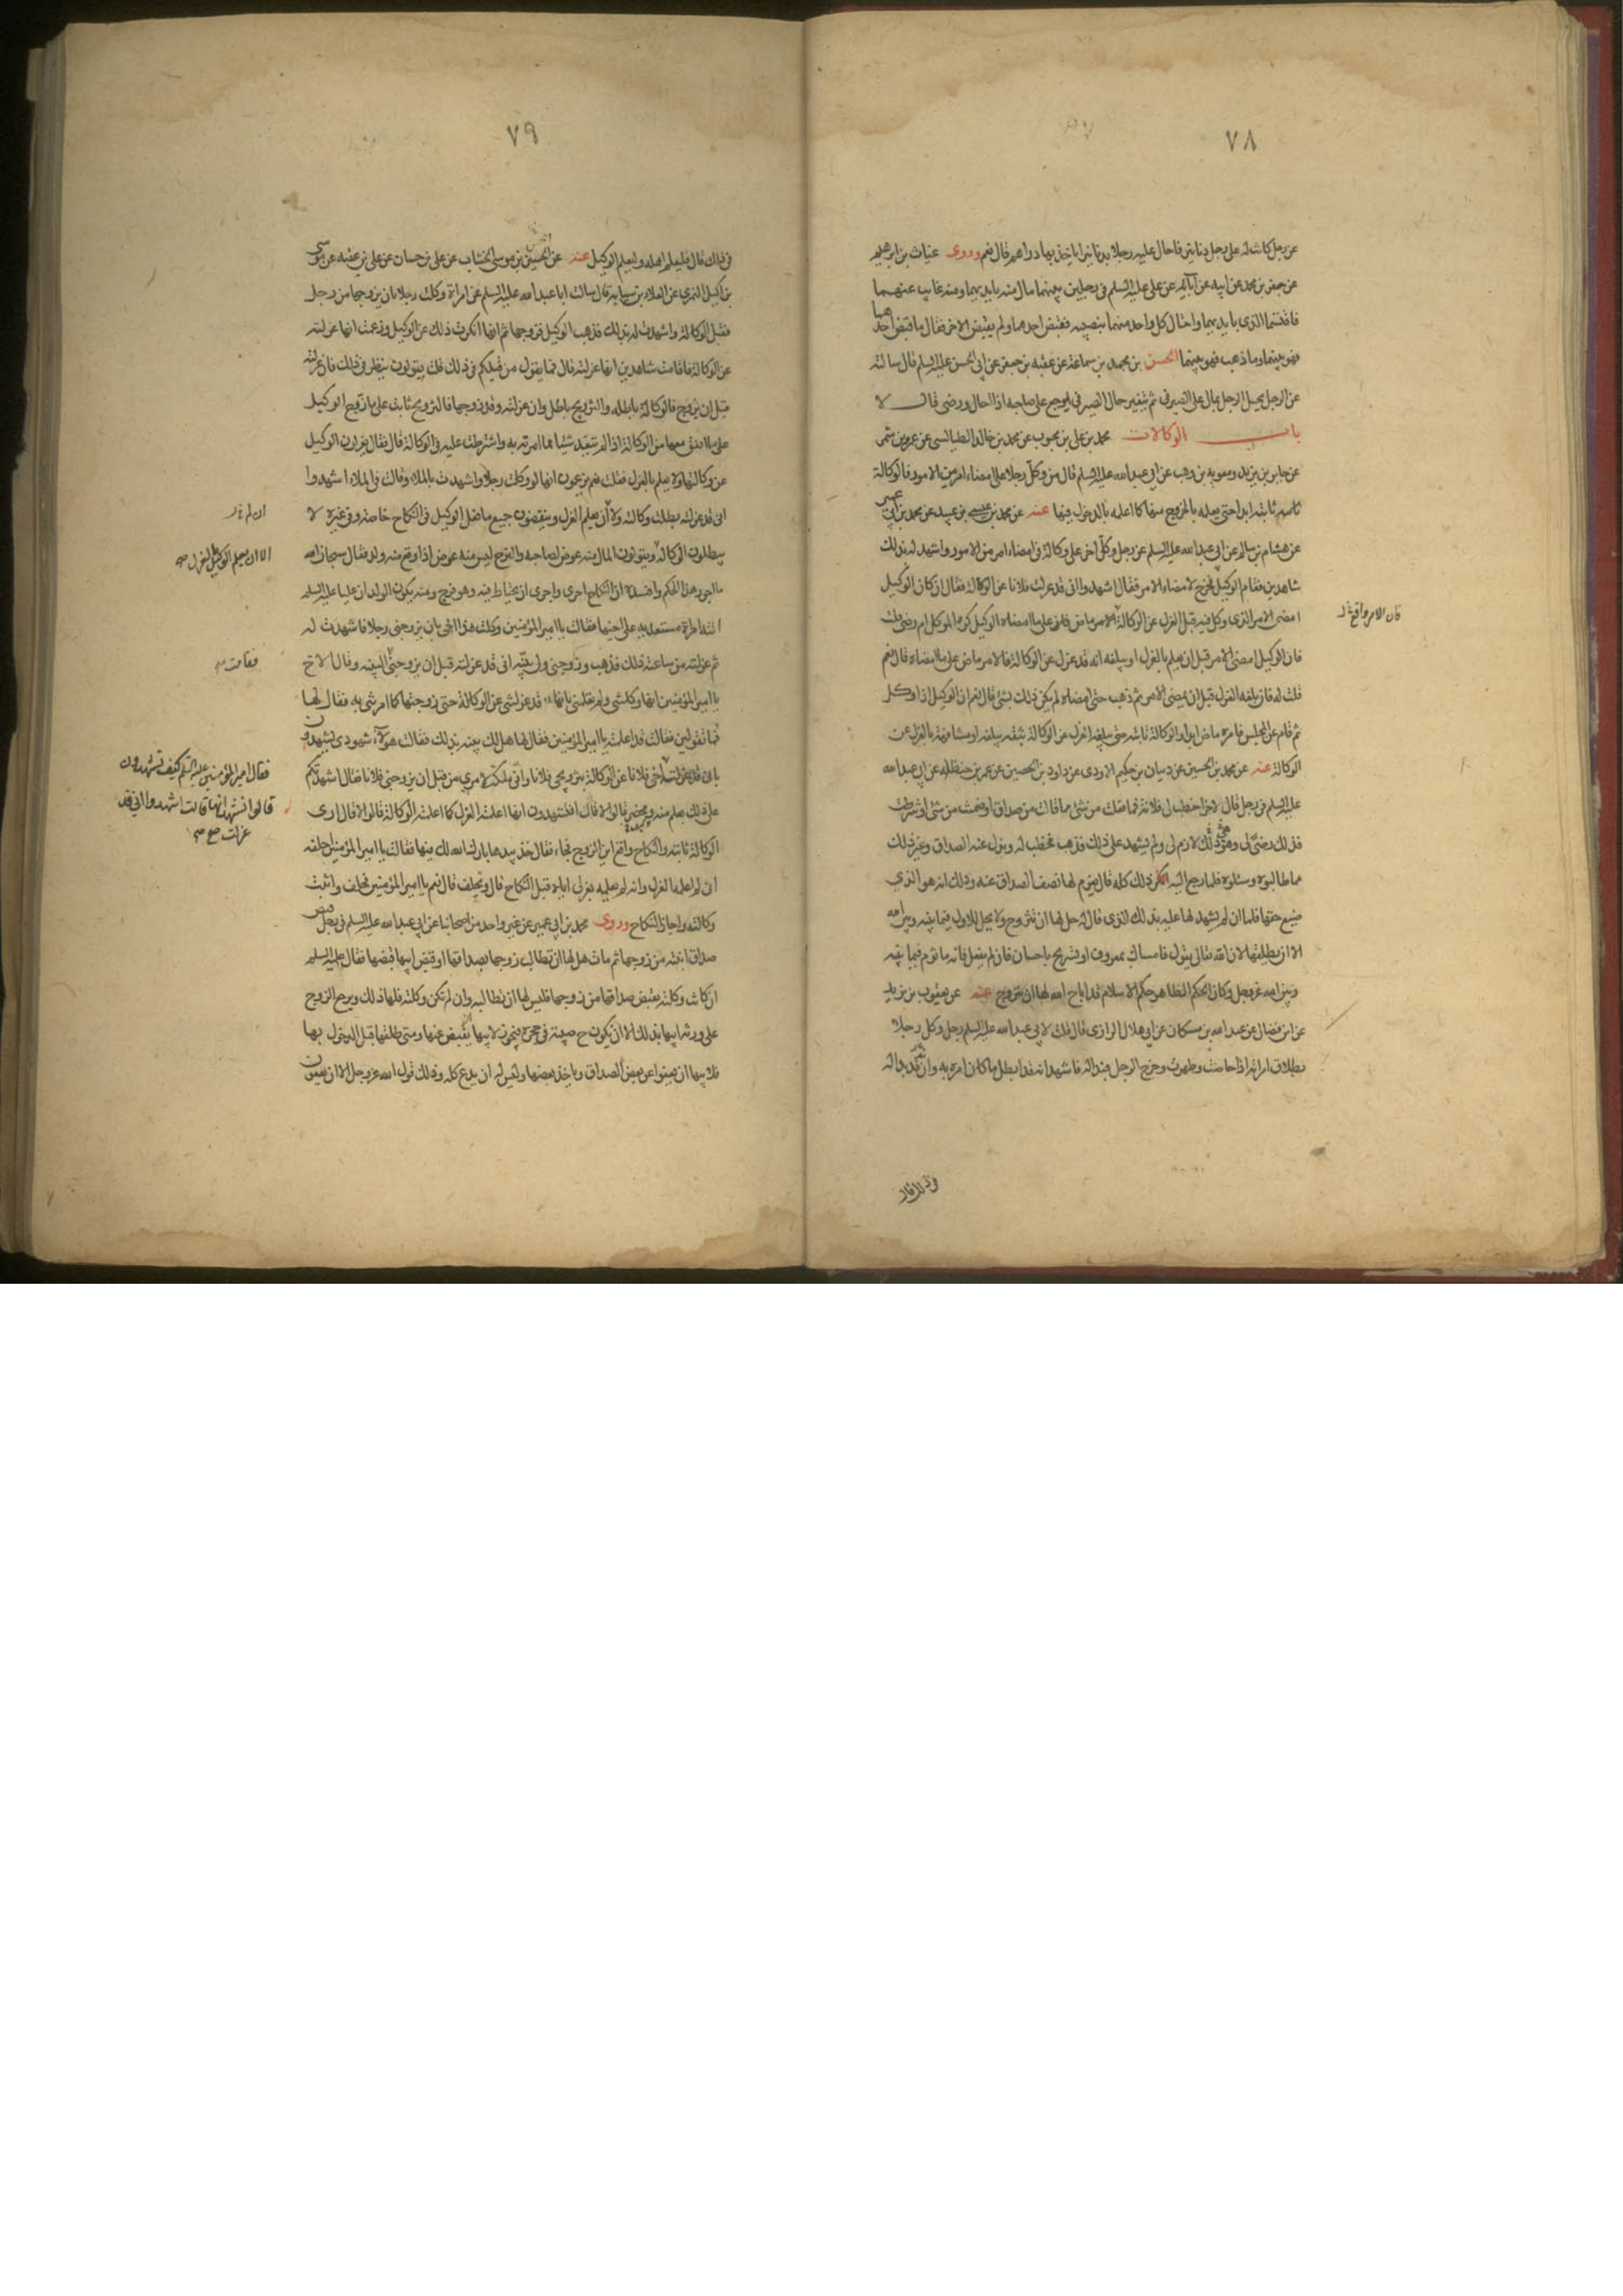 ٧٨
عن رجل كانت له على رجل دنانير فاحال عليه رجلا بدنانير اياخذ بها دراهم قال نعم وروى غياث بن ابرهيم
عن جعفر بن محمد عن ابيه عن آبائه عن على عليه السلم فى رجلين بينهما مال منه بايديهما ومنه غايب عنهما
فاقتسما الذى بايديهما واحتال كل واحد منهما بنصيبه فقبض احدهما ولم يقبض الاخر فقال ما قبض احدهما
فهو بينهما وما ذهب فهو بينهما الحسن بن محمد بن سماعة عن عقبه بن جعفر عن ابى الحسن عليه السلم قال سالته
عن الرجل يحيل الرجل بمال على الصيرفى ثم يتغير حال الصيرفى ايرجع على صاحبه اذا احتال ورضى قال لا
باب الوكالات محمد بن على بن محبوب عن محمد بن خالد الطيالسى عن عمرو بن شمر
عن جابر بن يزيد ومعويه بن وهب عن ابى عبد الله عليه السلم قال من وكل رجلا على امضاء امر من الامور فالوكالة
ثابته ابدا حتى يعلمه بالخروج منها كما اعلمه بالدخول فيها عنه عن محمد بن عيسى بن عبيد عن محمد بن ابى عمير
عن هشام بن سالم عن ابى عبد الله عليه السلم عن رجل وكل اخر على وكالة فى امضاء امر من الامور واشهد له بذلك
شاهدين فقام الوكيل فخرج لامضاء الامر فقال اشهدوا انى قد عزلت فلانا عن الوكالة فقال ان كان الوكيل
امضى الامر الذى وكل فيه قبل العزل عن الوكالة الامر ماض على ما امضاه الوكيل كره الموكل ام رضى قلت
فان الامر واقع
فان الوكيل امضى الامر قبل ان يعلم بالعزل او يبلغه انه قد عزل عن الوكالة فالامر ماض على ما امضاه قال نعم
قلت له فان بلغه العزل قبل ان يمضى الامر ثم ذهب حتى امضاه لم يكن ذلك بشئ قال نعم ان الوكيل اذا وكل
ثم قام عن المجلس فامره ماض ابدا والوكالة ثابته حتى يبلغه العزل عن الوكالة بثقه يبلغه او مشافهة بالعزل عن
الوكالة عنه عن محمد بن الحسين عن ذبيان بن حكيم الاودى عن داود بن الحصين عن عمر بن حنظله عن ابى عبد الله
عليه السلم فى رجل قال لاخر اخطب لى فلانة فما فعلت من شئ مما قاولت من صداق او ضمنت من شئ او شرطت
فذلك رضى لى وهو لازم لى ولم يشهد على ذلك فذهب فخطب له وبذل عنه الصداق وغير ذلك
مما طالبوه وسئلوه فلما رجع اليه انكر ذلك كله قال يغرم لها نصف الصداق عنه وذلك انه هو الذى
ضيع حقها فلما ان لم يشهد لها عليه بذلك الذى قال له حل لها ان تتزوج ولا يحل للاول فيما بينه وبين الله
الا ان يطلقها لان الله تعالى يقول فامساك بمعروف او تسريح باحسان فان لم يفعل فانه ماثوم فيما بينه
وبين الله عز وجل وكان الحكم الظاهر حكم الاسلام قد اباح الله لها ان تتزوج عنه عن يعقوب بن يزيد
عن ابن فضال عن عبد الله بن مسكان عن ابى هلال الرازى قال قلت لابى عبد الله عليه السلم رجل وكل رجلا
بطلاق امراته اذا حاضت وطهرت وخرج الرجل فبدا له فاشهد انه قد ابطل ما كان امره به وانه قد بدا له
٧٩
فى ذلك قال فليعلم اهله وليعلم الوكيل عنه عن الحسن بن موسى الخشاب عن على بن حسان عن على بن عقبه عن موسى
بن اكيل النمرى عن العلاء بن سيابه قال سالت ابا عبد الله عليه السلم عن امراة وكلت رجلا بان يزوجها من رجل
فقبل الوكالة واشهدت له بذلك فذهب الوكيل فزوجها ثم انها انكرت ذلك عن الوكيل وزعمت انها عزلته
عن الوكالة فاقامت شاهدين انها عزلته قال فما يقول من قبلكم فى ذلك قلت يقولون ينظر فى ذلك فان عزلته
قبل ان يزوج فالوكالة باطله والتزويج باطل وان عزلته وقد زوجها فالتزويج ثابت على ما زوج الوكيل
على ما اتفق معها من الوكالة اذا لم يتعد شيئا مما امرته به واشترطت عليه فى الوكالة قال فقال يعزلون الوكيل
عن وكالتها ولا يعلم بالعزل فقلت نعم يزعمون انها لو وكلت رجلا واشهدت بالملاء وقالت فى الملاء اشهدوا
انى قد عزلته بطلت وكالته ولا ان يعلم العزل وينقضون جميع ما فعل الوكيل فى النكاح خاصة وفى غيره لا
يبطلون الوكالة ويقولون المال منه عوض لصاحبه والفرج ليس منه عوض اذا وقع منه ولد فقال سبحان الله
الا ان يعلم الوكيل بالعزل
ما اجور هذا الحكم وافسده ان النكاح احرى واحرى ان يحتاط فيه وهو فرج ومنه يكون الولد ان عليا عليه السلم
اتته امراة مستعديه على اخيها فقالت يا امير المؤمنين وكلت هذا اخى بان يزوجنى رجلا فاشهدت له
ثم عزلته من ساعته تلك فذهب وزوجنى ولى بينه انى قد عزلته قبل ان يزوجنى البينه وقال الاخ
فقامت
يا امير المؤمنين انها وكلتنى ولم تعلمنى بانها قد عزلتنى عن الوكالة حتى زوجتها كما امرتنى به فقال لها
فما تقولين فقالت قد اعلمته يا امير المؤمنين فقال لها هل لك بينه بذلك فقالت هؤلاء شهودى يشهدون
بانى قد عزلت اخى فلانا عن الوكالة بتزويجى فلانا وانى مالكة لامرى من قبل ان يزوجنى فلانا فقال اشهدتكم
فقال امير المؤمنين عليه السلم كيف تشهدون
قالوا نشهد انها قالت اشهدوا انى قد
عزلت صح
على ذلك بعلم منه ومحضر قالوا لا قال افتشهدون انها اعلمته العزل كما اعلمته الوكالة قالوا لا قال ارى
الوكالة ثابته والنكاح واقع اين الزوج فجاء فقال خذ بيدها بارك الله لك فيها فقالت يا امير المؤمنين احلفه
انى لم اعلمه العزل وانه لم يعلم بعزلى اياه قبل النكاح قال وتحلف قال نعم يا امير المؤمنين فحلف واثبت
وكالته واجاز النكاح وروى محمد بن ابى عمير عن غير واحد من اصحابنا عن ابى عبد الله عليه السلم فى رجل قبض
صداق ابنته من زوجها ثم مات هل لها ان تطالب زوجها بصداقها او قبض ابيها قبضها فقال عليه السلم
ان كانت وكلته بقبض صداقها من زوجها فليس لها ان تطالبه وان لم تكن وكلته فلها ذلك ويرجع الزوج
على ورثه ابيها بذلك الا ان تكون ح صبيه فى حجره فيجوز لابيها ان يقبض عنها ومتى طلقها قبل الدخول بها
فلابيها ان يعفو عن بعض الصداق وياخذ بعضها وليس له ان يدع كله وذلك قول الله عز وجل الا ان يعفون